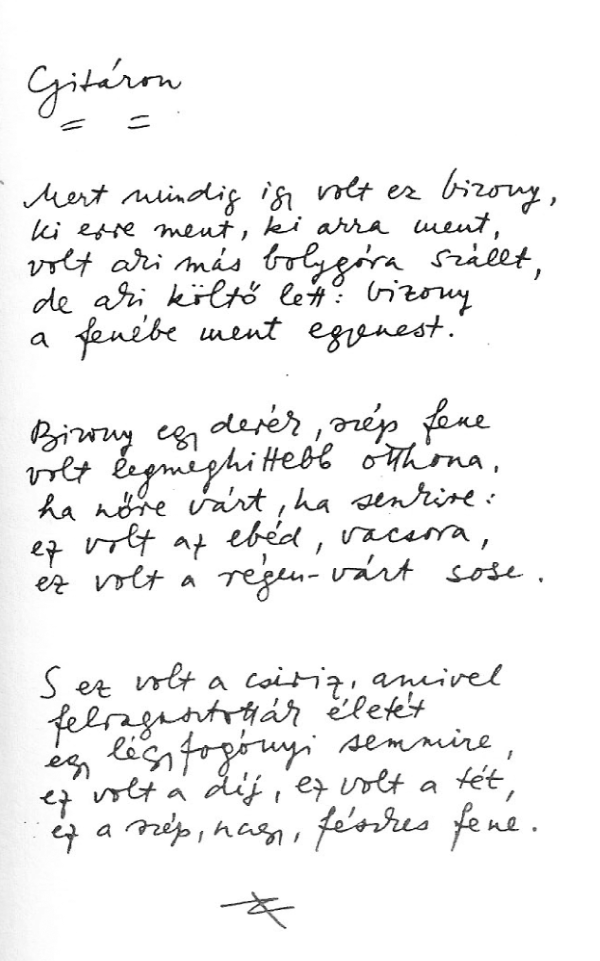 Gitáron
Mert mindig így volt ez bizony,
ki erre ment, ki arra ment,
volt aki más bolygóra szállt,
de aki költő lett: bizony
a fenébe ment egyenest.
Bizony egy derék, szép fene
volt legmeghittebb otthona,
ha nőre várt, ha senkire:
ez volt az ebéd, vacsora,
ez volt a régen-várt sose.
S ez volt a csiriz, amivel
felragasztották életét
egy légyfogónyi semmire,
ez volt a díj, ez volt a tét,
ez a szép, nagy, fészkes fene.